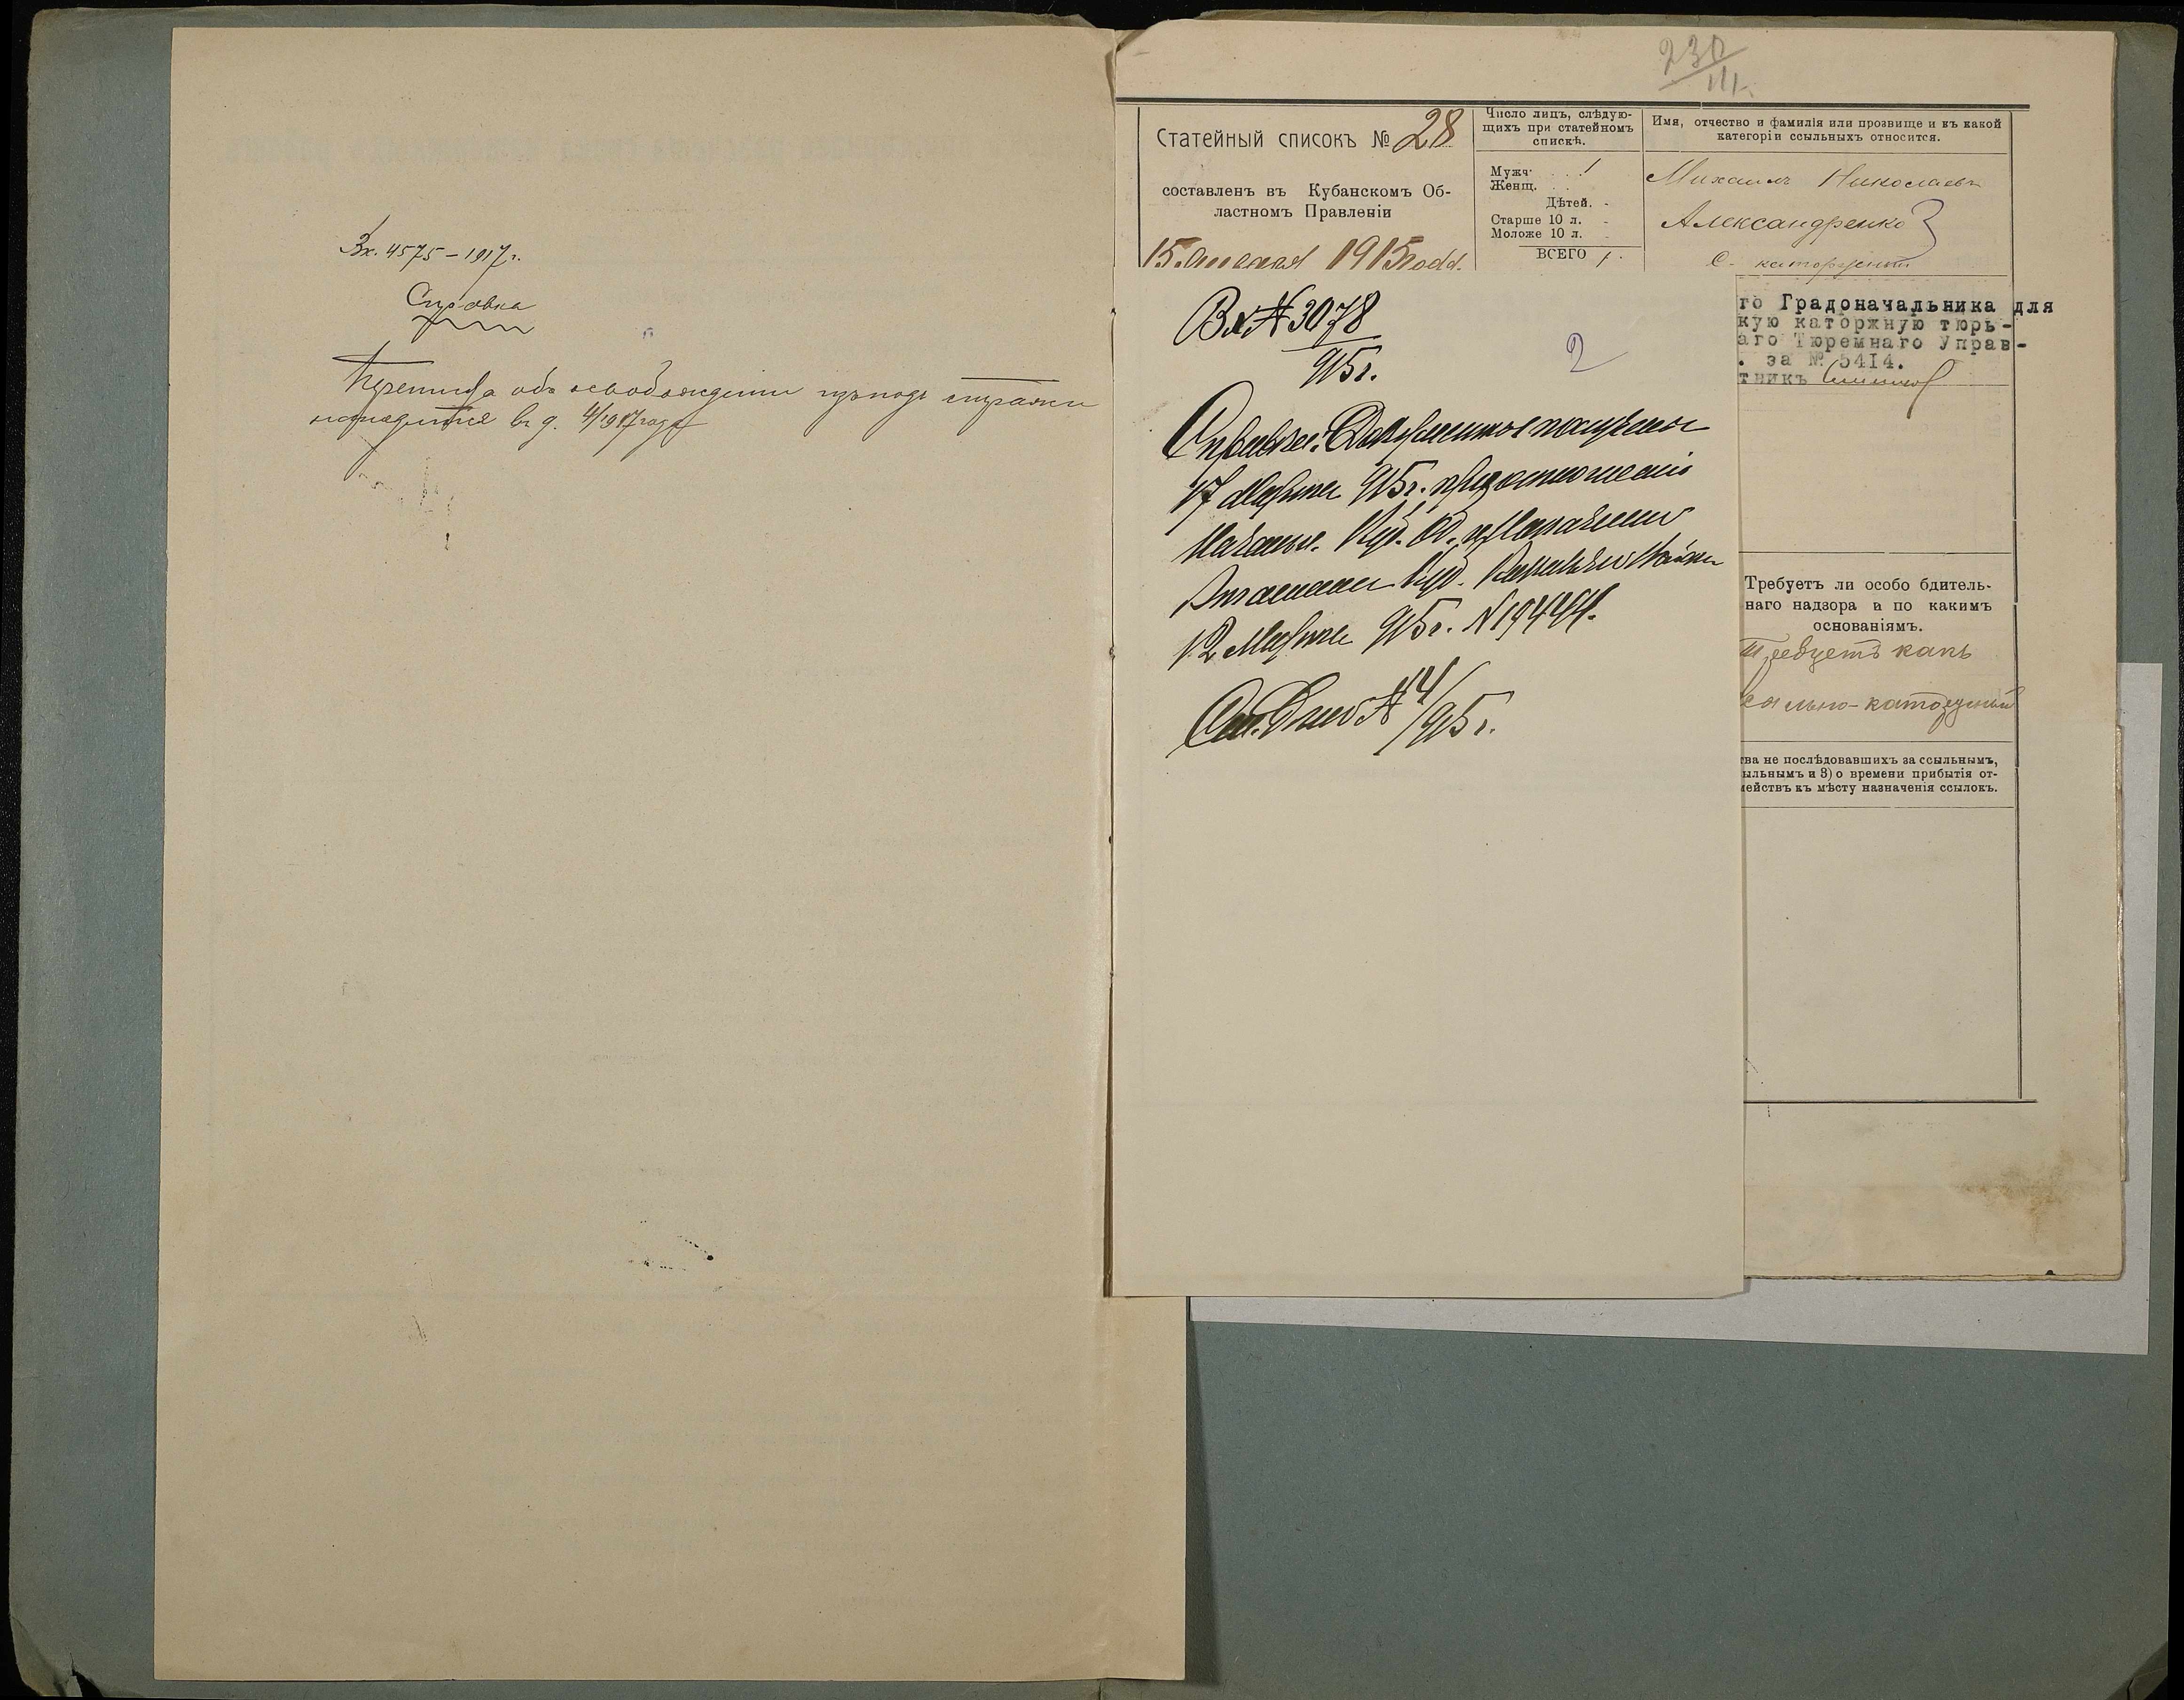 Вх. 4575 – 1917 г.
Справка
Переписка объ освобожденіи изъ подъ стражи
находится въ д. 4/1917 года
230
III
Статейный списокъ № 28
составленъ въ Кубанскомъ Об-
ластномъ Правленіи
15 1915 года.
Число лицъ, слѣдую-
щихъ при статейномъ
спискѣ.
Мужч. . . 1
Женщ. . .
Дѣтей. -
Старше 10 л. -
Моложе 10 л. -
ВСЕГО 1.
Имя, отчество и фамилія или прозвище и къ какой
категоріи ссыльныхъ относится.
Михаилъ Николаевъ
Александренко
С. каторжный
Вх № 3078
915 г.
2
Справка: Документы получены
17 Марта 915 г. при отношеніи
Начальн. Куб. Об. и
Атамана Куб. Казачьяго Войска
12 Марта 915 г. № 19444.
См. дело № 4/915 г.
го Градоначальника для
кую каторжную тюрь-
аго Тюремнаго Управ-
. за № 5414.
тникъ
Требуетъ ли особо бдитель-
наго надзора и по какимъ
основаніямъ.
Требуетъ какъ
льно-каторжный
тва не послѣдовавшихъ за ссыльнымъ,
ыльнымъ и 3) о времени прибытія от-
мействъ къ мѣсту назначенія ссылокъ.